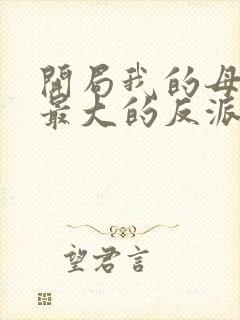 開局我的母
最大的反派
望君言